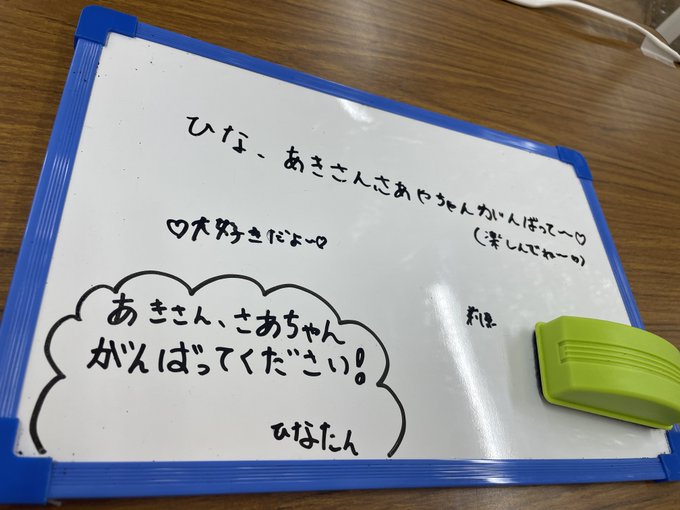 ひな、あきさん、さあやちゃんがんばって〜♡
(楽しんでね〜♡)
♡大好きだよ〜♡
あきさん、さあちゃん
がんばってください!
ひなたん